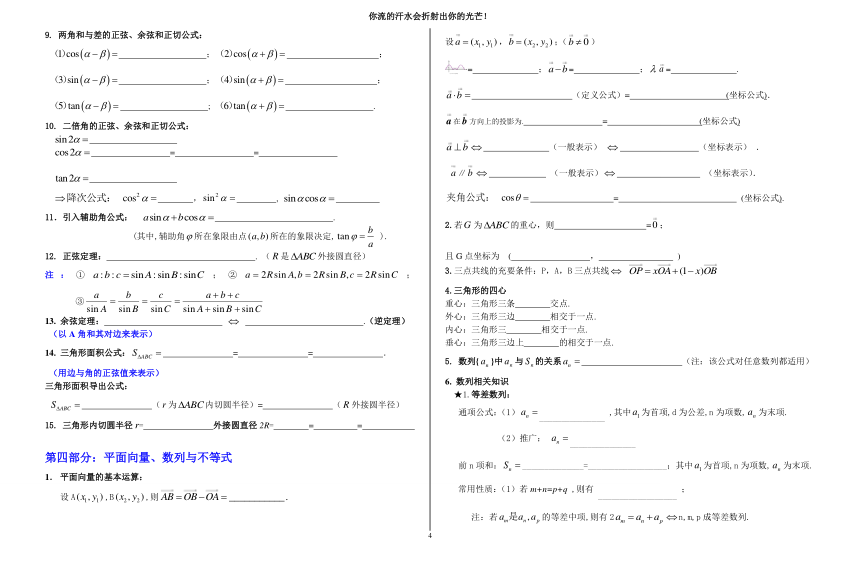 你流的汗水会折射出你的光芒!
9. 两角和与差的正弦、余弦和正切公式:
⑴cos(α−β)=____________________; ⑵cos(α+β)=____________________;
⑶sin(α−β)=____________________; ⑷sin(α+β)=____________________;
⑸tan(α−β)=____________________; ⑹tan(α+β)=____________________.
10. 二倍角的正弦、余弦和正切公式:
sin2α=____________________
cos2α=__________________=__________________=__________________
tan2α=____________________
⇒降次公式: cos²α=________, sin²α=________, sinαcosα=__________
11. 引入辅助角公式: asinα+bcosα=__________________________.
(其中,辅助角φ所在象限由点(a,b)所在的象限决定, tanφ=b/a ).
12. 正弦定理:__________________________________. ( R是ΔABC外接圆直径)
注:① a:b:c=sinA:sinB:sinC;② a=2RsinA,b=2RsinB,c=2RsinC;
③ a/sinA = b/sinB = c/sinC = (a+b+c)/(sinA+sinB+sinC)
13. 余弦定理:__________________________ ⇔ __________________________.(逆定理)
(以 A 角和其对边来表示)
14. 三角形面积公式: S_ΔABC=________________=________________=________________.
(用边与角的正弦值来表示)
三角形面积导出公式:
S_ΔABC=________________( r为ΔABC内切圆半径)=________________( R外接圆半径)
15. 三角形内切圆半径 r=________________外接圆直径 2R=________=__________=____________
第四部分: 平面向量、数列与不等式
1. 平面向量的基本运算:
设 A(x₁,y₁),B(x₂,y₂),则AB→=OB→−OA→=_____________.
设a→=(x₁,y₁), b→=(x₂,y₂);(b→≠0→)
=______________; a→−b→=______________; λa→=______________.
a→·b→=______________________(定义公式)=______________________(坐标公式).
a→在b→方向上的投影为.__________________=____________________(坐标公式)
a→⊥b→⇔______________(一般表示) ⇔__________________(坐标表示) .
a→∥b→ ⇔____________ (一般表示)⇔__________________ (坐标表示).
夹角公式: cosθ=__________________=__________________________ (坐标公式).
2.若G为ΔABC的重心,则____________________=0→;
且G点坐标为 (__________________, __________________ )
3.三点共线的充要条件: P, A, B三点共线⇔ OP→=xOA→+(1−x)OB→
4.三角形的四心
重心: 三角形三条________交点.
外心: 三角形三边________相交于一点.
内心: 三角形三________相交于一点.
垂心: 三角形三边上________的相交于一点.
5. 数列{aₙ}中aₙ与Sₙ的关系aₙ=______________________(注: 该公式对任意数列都适用)
6. 数列相关知识
★1.等差数列:
通项公式:(1) aₙ=______________,其中a₁为首项,d为公差,n为项数,aₙ为末项.
(2)推广: aₙ=______________
前n项和: Sₙ=______________=__________________;其中a₁为首项,n为项数, aₙ为末项.
常用性质:(1)若m+n=p+q ,则有 __________________ ;
注: 若aₘ是aₙ,aₚ的等差中项,则有 2aₘ=aₙ+aₚ⇔n,m,p成等差数列.
4